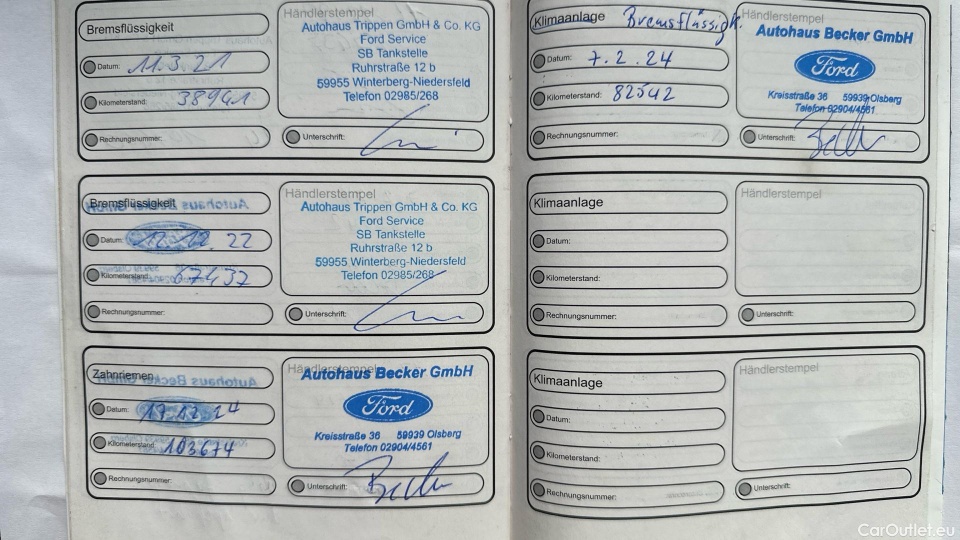 Bremsflüssigkeit
Datum: 11.3.21
Kilometerstand: 38941
Rechnungsnummer:
Händlerstempel
Autohaus Trippen GmbH & Co. KG
Ford Service
SB Tankstelle
Ruhrstraße 12 b
59955 Winterberg-Niedersfeld
Telefon 02985/268
Unterschrift:
Bremsflüssigkeit
Datum: 12.12.22
Kilometerstand: 67437
Rechnungsnummer:
Händlerstempel
Autohaus Trippen GmbH & Co. KG
Ford Service
SB Tankstelle
Ruhrstraße 12 b
59955 Winterberg-Niedersfeld
Telefon 02985/268
Unterschrift:
Zahnriemen
Datum: 17.12.24
Kilometerstand: 103674
Rechnungsnummer:
Händlerstempel
Autohaus Becker GmbH
Ford
Kreisstraße 36 59939 Olsberg
Telefon 02904/4561
Unterschrift:
Klimaanlage Bremsflüssigk.
Datum: 7.2.24
Kilometerstand: 82542
Rechnungsnummer:
Händlerstempel
Autohaus Becker GmbH
Ford
Kreisstraße 36 59939 Olsberg
Telefon 02904/4561
Unterschrift:
Klimaanlage
Datum:
Kilometerstand:
Rechnungsnummer:
Händlerstempel
Unterschrift:
Klimaanlage
Datum:
Kilometerstand:
Rechnungsnummer:
Händlerstempel
Unterschrift:
CarOutlet.eu